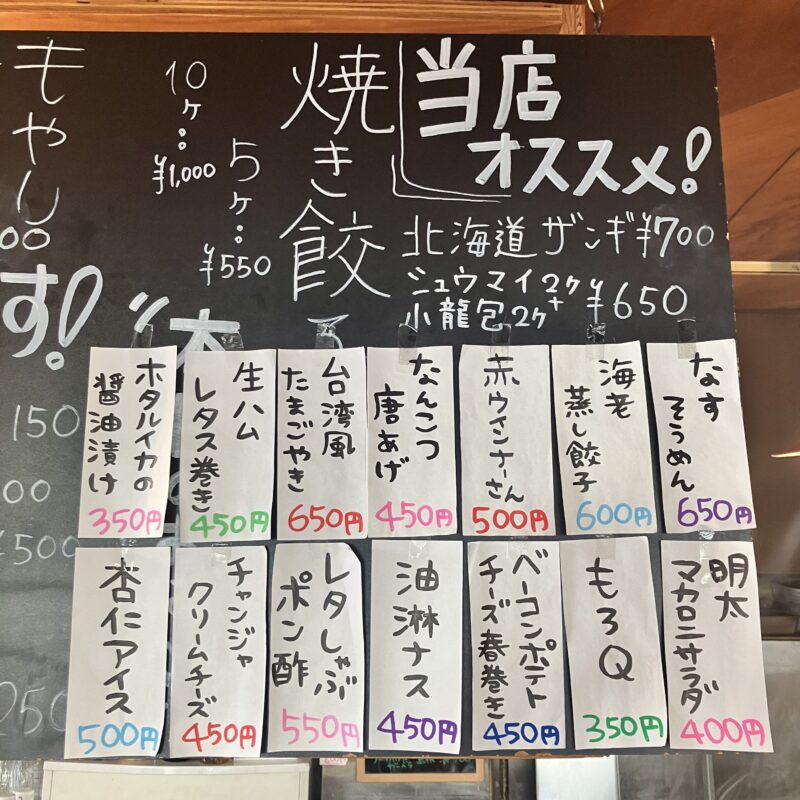 当店
オススメ!
北海道ザンギ¥700
シュウマイ2ケ
+
小龍包2ケ
¥650
焼き餃子
5ヶ:
¥550
10ヶ:
¥1,000
もやし
00
す!
150
00
¥500
250
なす
そうめん
650円
海老
蒸し餃子
600円
赤ウインナーさん
500円
なんこつ
唐あげ
450円
台湾風
たまごやき
650円
生ハム
レタス巻き
450円
ホタルイカの
醤油漬け
350円
明太
マカロニサラダ
400円
もろQ
350円
ベーコンポテト
チーズ春巻き
450円
油淋ナス
450円
レタしゃぶ
ポン酢
550円
チャンジャ
クリームチーズ
450円
杏仁アイス
500円